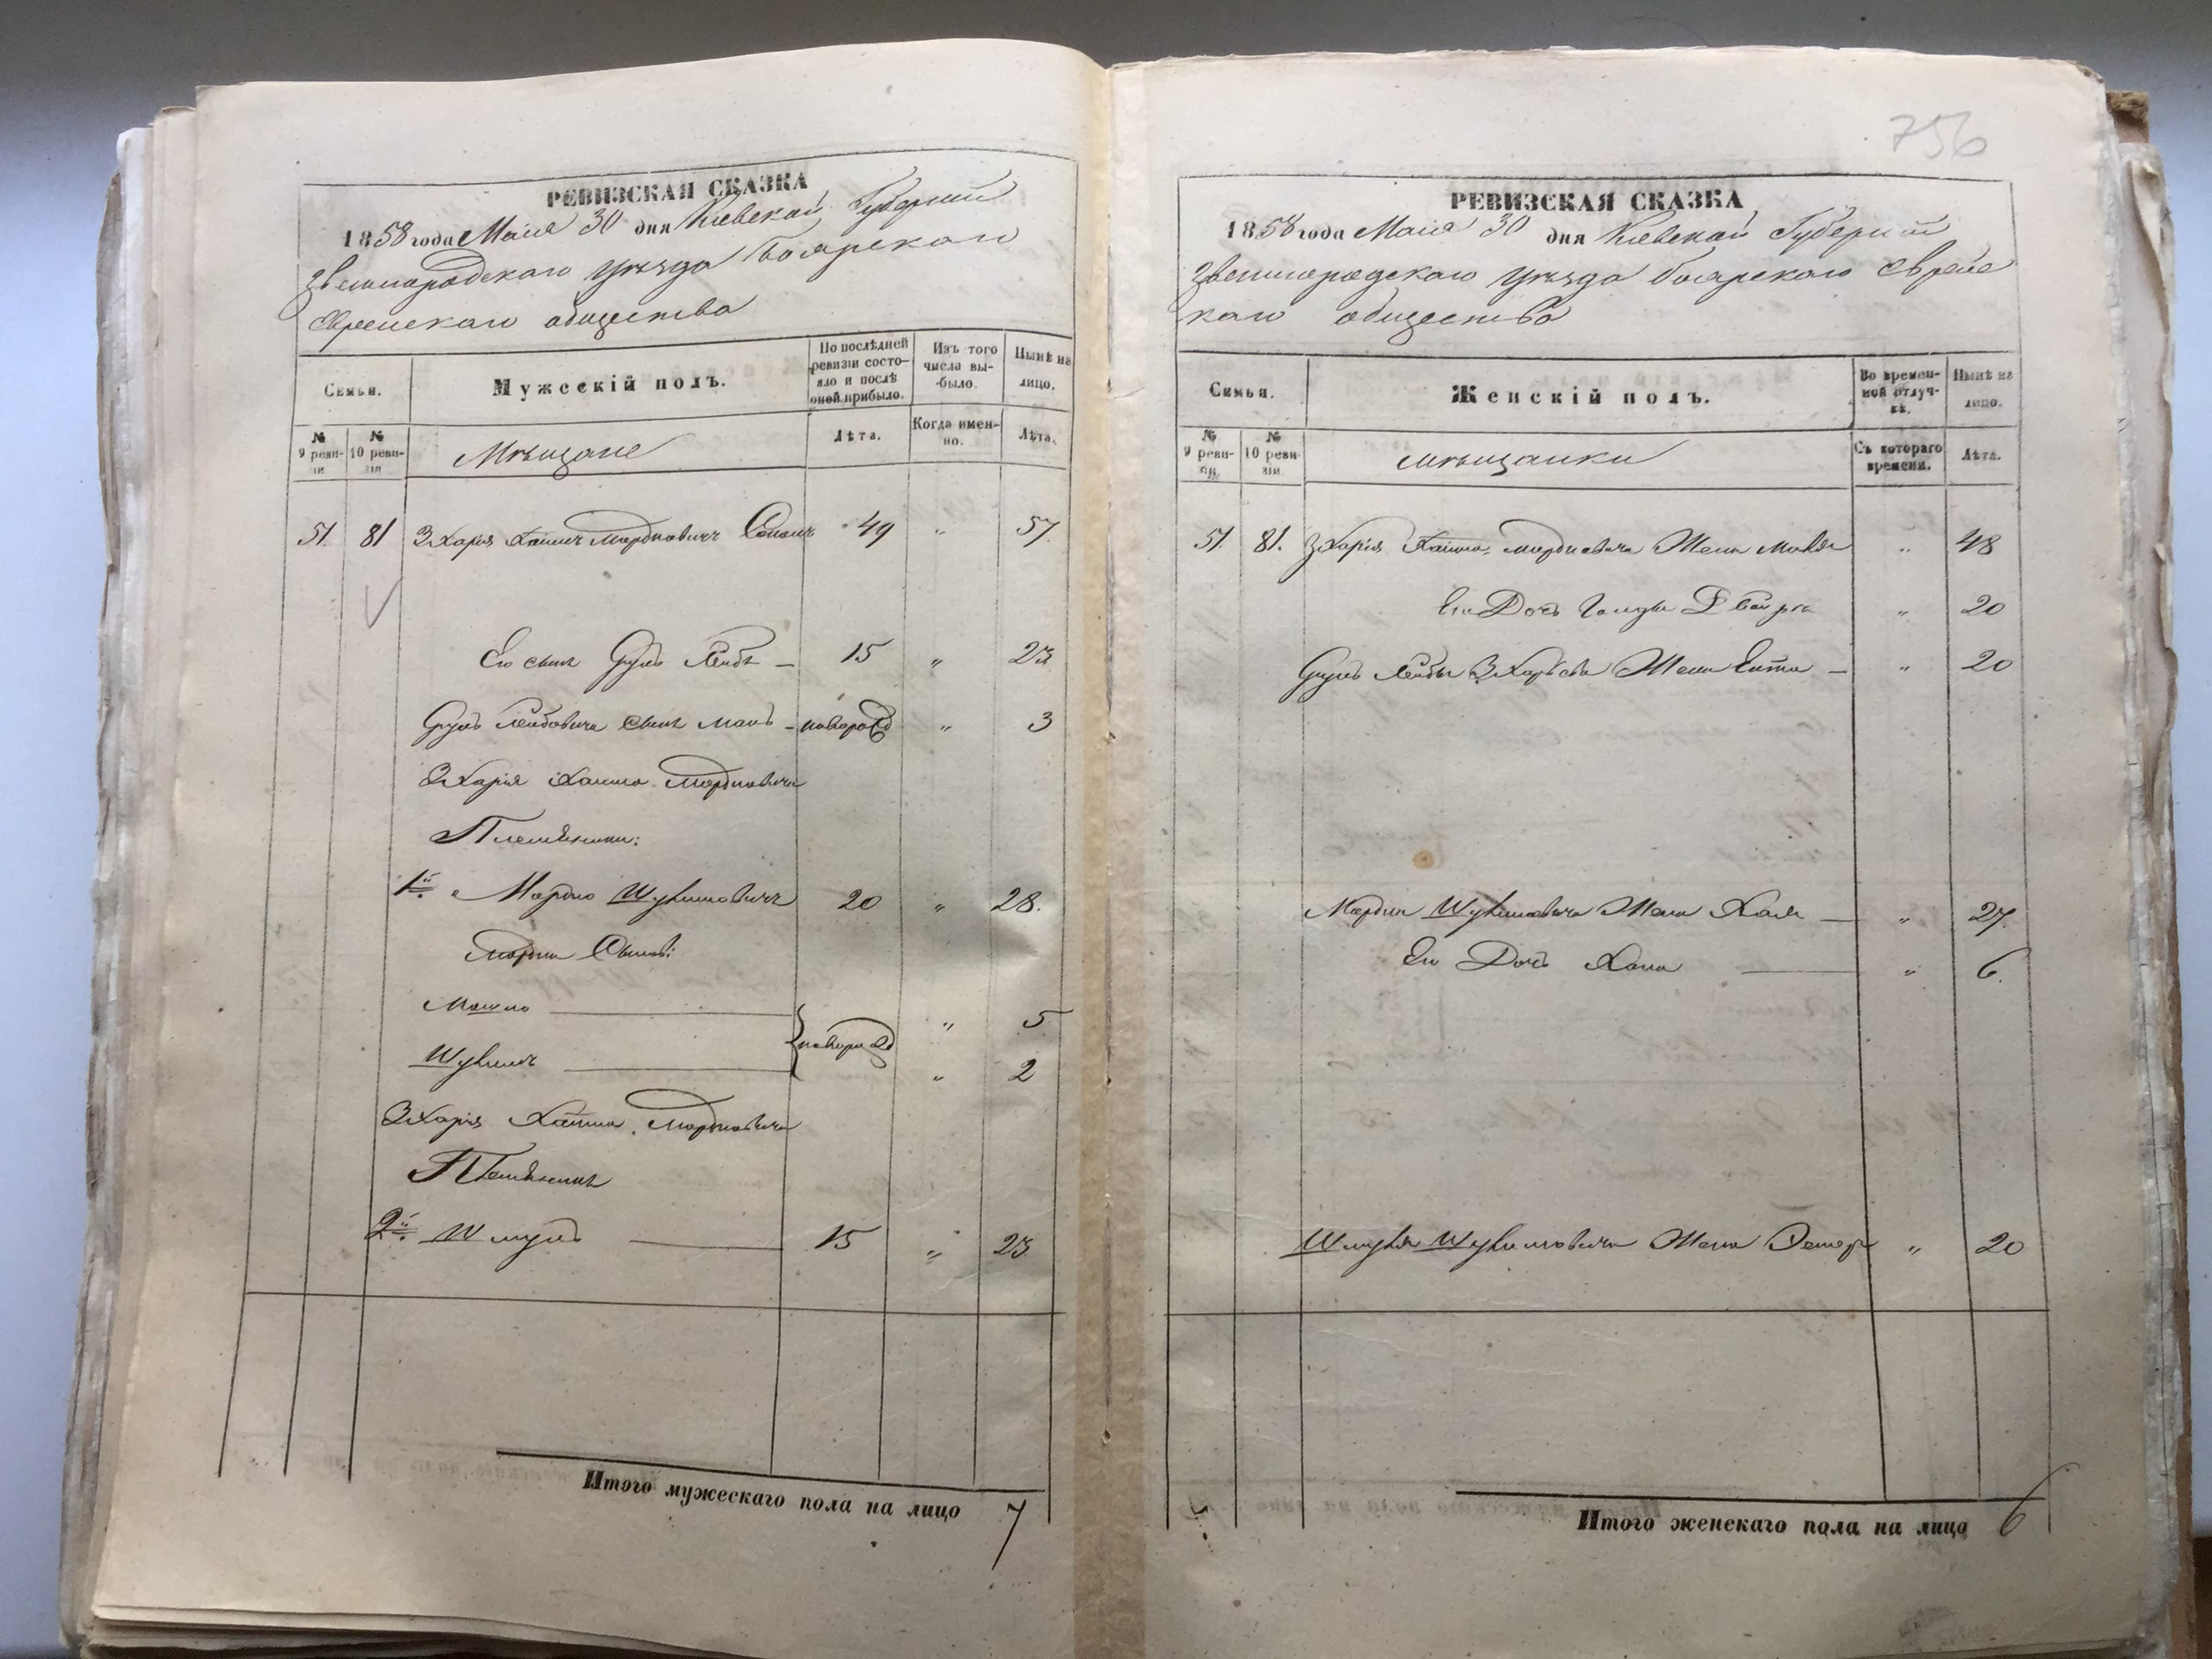 РЕВИЗСКАЯ СКАЗКА
1858 года Маія 30 дня Кіевской Губерніи
Звенигородскаго уѣзда Боярскаго
Еврейскаго общества
Семьи.
Мужескій полъ.
По послѣдней ревизіи состояло и послѣ оной прибыло.
Изъ того числа выбыло.
Нынѣ на лицо.
№ 9 ревизіи
№ 10 ревизіи
Мѣщане
Лѣта.
Когда именно.
Лѣта.
51. 81 Зхарія Хаимъ Мордковичъ 49 " 57.
Его сынъ Сруль Лейбъ — 15 " 23
Сруль Лейбовича сынъ — новорожд " 3
Зхарія Хаима Мордковича
Племянники:
1й Мордко Шулимовичъ 20 " 28.
Мордки Сыновья:
Мошко " 5
новорожд
Шулимъ " 2
Зхарія Хаима Мордковича
Племянникъ
2й Шмуль 15 " 23
Итого мужескаго пола на лицо 7
756
РЕВИЗСКАЯ СКАЗКА
1858 года Маія 30 дня Кіевской Губерніи
Звенигородскаго уѣзда Боярскаго Еврейс
каго общества
Семьи.
Женскій полъ.
Во временной отлучкѣ.
Нынѣ на лицо.
№ 9 ревизіи
№ 10 ревизіи
мѣщанки
Съ котораго времени.
Лѣта.
51. 81. Зхарія Хаима Мордковича Жена " 48
Его Дочь Двойра " 20
Сруль Лейбы Жена — " 20
Мордки Шулимовича Жена Хая — " 27.
Его Дочь Хана — " 6.
Шмуля Шулимовича Жена Эстеръ " 20
Итого женскаго пола на лицо 6